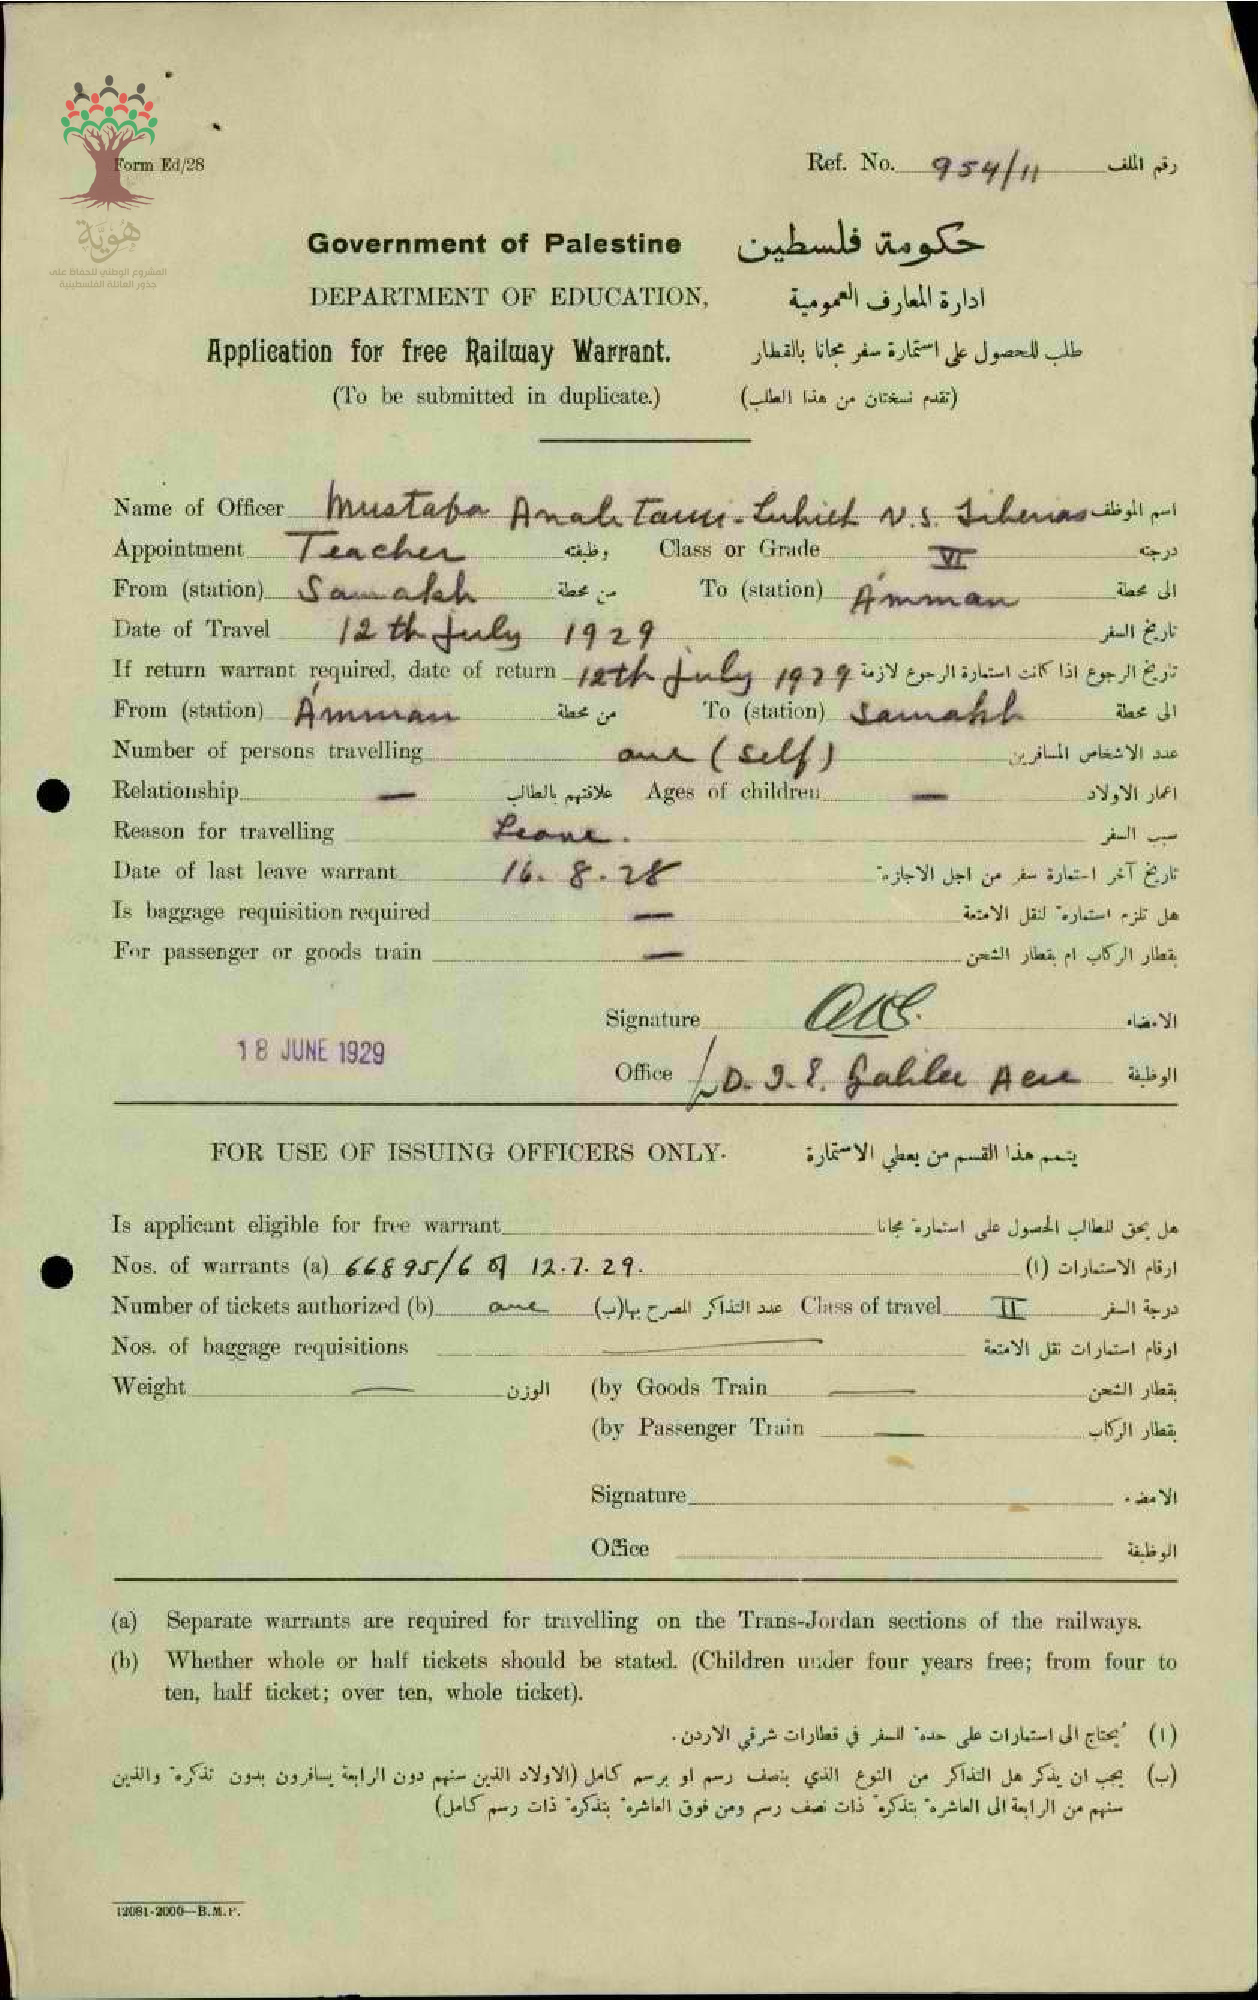 هُوِيَّة
المشروع الوطني للحفاظ على
جذور العائلة الفلسطينية
Form Ed/28
Ref. No. 954/11 رقم الملف
Government of Palestine حكومة فلسطين
DEPARTMENT OF EDUCATION, ادارة المعارف العمومية
Application for free Railway Warrant. طلب للحصول على استمارة سفر مجانا بالقطار
(To be submitted in duplicate.) (تقدم نسختان من هذا الطلب)
Name of Officer Mustafa N.S. Tiberias اسم الموظف
Appointment Teacher وظيفته Class or Grade VI درجته
From (station) Samakh من محطة To (station) Amman الى محطة
Date of Travel 12th July 1929 تاريخ السفر
If return warrant required, date of return 12th July 1929 تاريخ الرجوع اذا كانت استمارة الرجوع لازمة
From (station) Amman من محطة To (station) Samakh الى محطة
Number of persons travelling one (self) عدد الاشخاص المسافرين
Relationship — علاقتهم بالطالب Ages of children — اعمار الاولاد
Reason for travelling Leave. سبب السفر
Date of last leave warrant 16.8.28 تاريخ آخر استمارة سفر من اجل الاجازة
Is baggage requisition required — هل تلزم استمارة لنقل الامتعة
For passenger or goods train — بقطار الركاب ام بقطار الشحن
Signature الامضاء
18 JUNE 1929
Office D.I.E. Galilee Acre الوظيفة
FOR USE OF ISSUING OFFICERS ONLY. يتمم هذا القسم من يعطي الاستمارة
Is applicant eligible for free warrant هل يحق للطالب الحصول على استمارة مجانا
Nos. of warrants (a) 66895/6 of 12.7.29. ارقام الاستمارات (ا)
Number of tickets authorized (b) one عدد التذاكر المصرح بها(ب) Class of travel II درجة السفر
Nos. of baggage requisitions — ارقام استمارات نقل الامتعة
Weight — الوزن (by Goods Train — بقطار الشحن
(by Passenger Train — بقطار الركاب
Signature الامضاء
Office الوظيفة
(a) Separate warrants are required for travelling on the Trans-Jordan sections of the railways.
(b) Whether whole or half tickets should be stated. (Children under four years free; from four to
ten, half ticket; over ten, whole ticket).
(ا) يُحتاج الى استمارات على حدة للسفر في قطارات شرقي الاردن.
(ب) يجب ان يذكر هل التذاكر من النوع الذي بنصف رسم او برسم كامل (الاولاد الذين سنهم دون الرابعة يسافرون بدون تذكرة والذين
سنهم من الرابعة الى العاشرة بتذكرة ذات نصف رسم ومن فوق العاشرة بتذكرة ذات رسم كامل)
12081-2000—B.M.P.